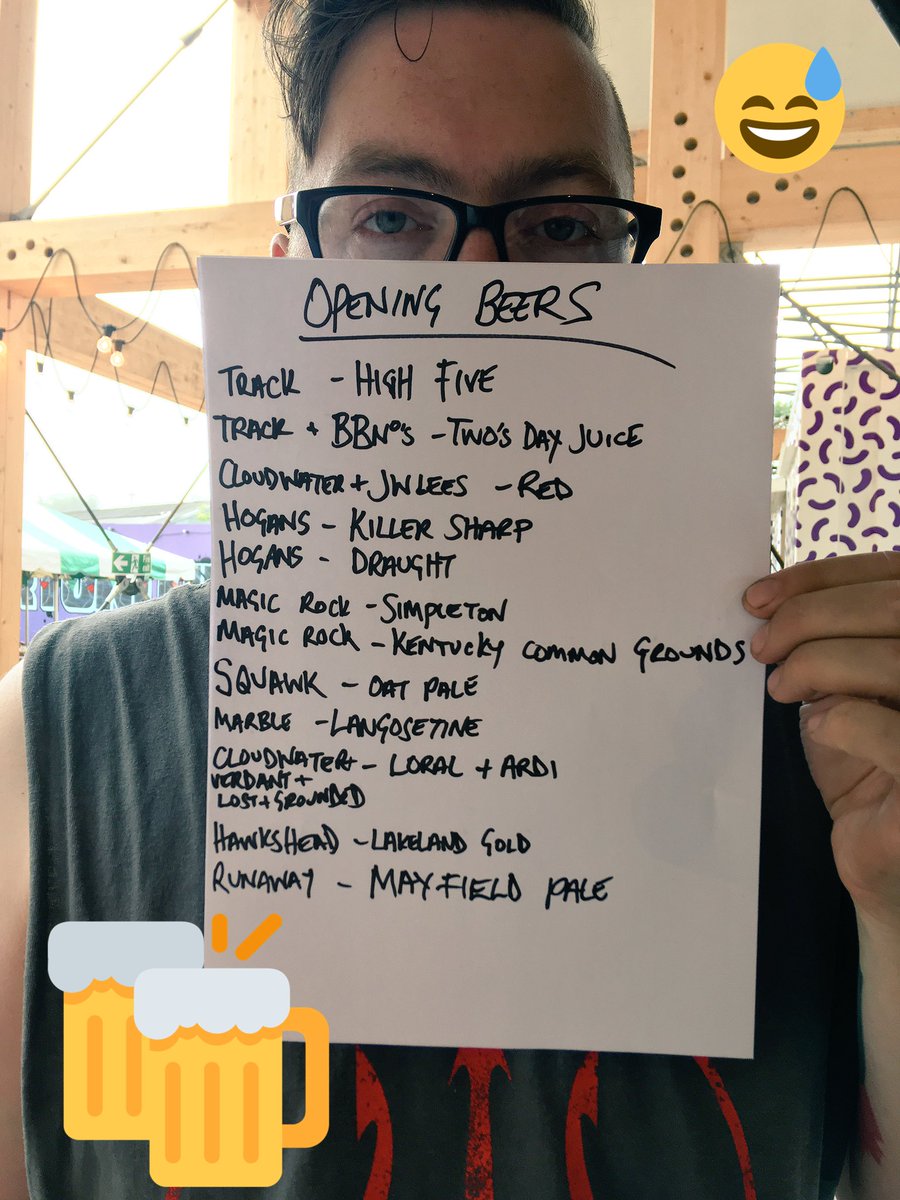 OPENING BEERS
TRACK - HIGH FIVE
TRACK + BBNo's - TWO'S DAY JUICE
CLOUDWATER + JW LEES - RED
HOGANS - KILLER SHARP
HOGANS - DRAUGHT
MAGIC ROCK - SIMPLETON
MAGIC ROCK - KENTUCKY COMMON GROUNDS
SQUAWK - OAT PALE
MARBLE - LANGOSETINE
CLOUDWATER + - LORAL + ARDI
VERDANT +
LOST + GROUNDED
HAWKSHEAD - LAKELAND GOLD
RUNAWAY - MAYFIELD PALE